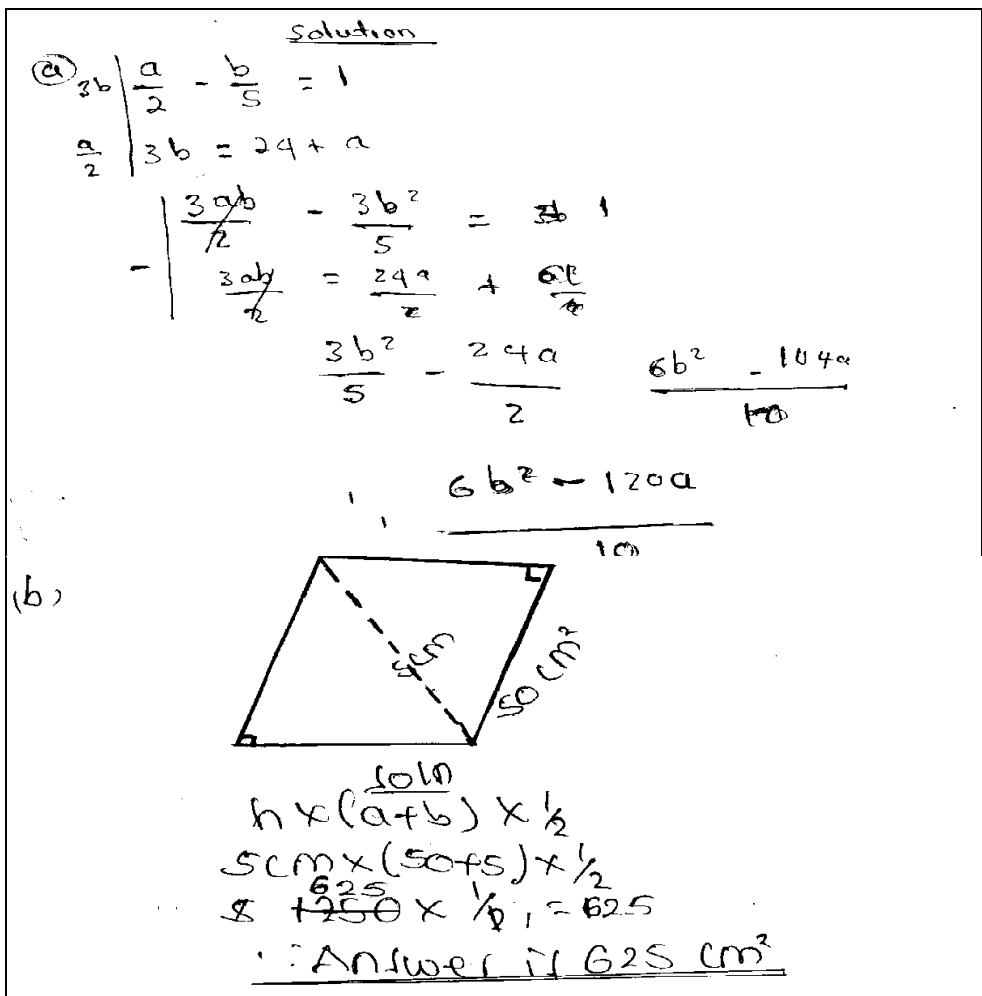 Solution
(a) 3b | a/2 - b/5 = 1
a/2 | 3b = 24 + a
3ab/2 - 3b²/5 = 1
- 3ab/2 = 24a/2 +
3b²/5 - 24a/2 6b² - 104a/10
6b² - 120a/10
(b)
5cm
50 cm²
soln
h x (a+b) x 1/2
5cm x (50+5) x 1/2
625
1250 x 1/2, = 625
∴ Answer is 625 cm²